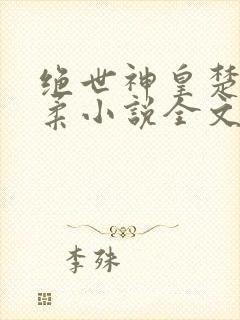 绝世神皇楚
柔小说全文
李殊